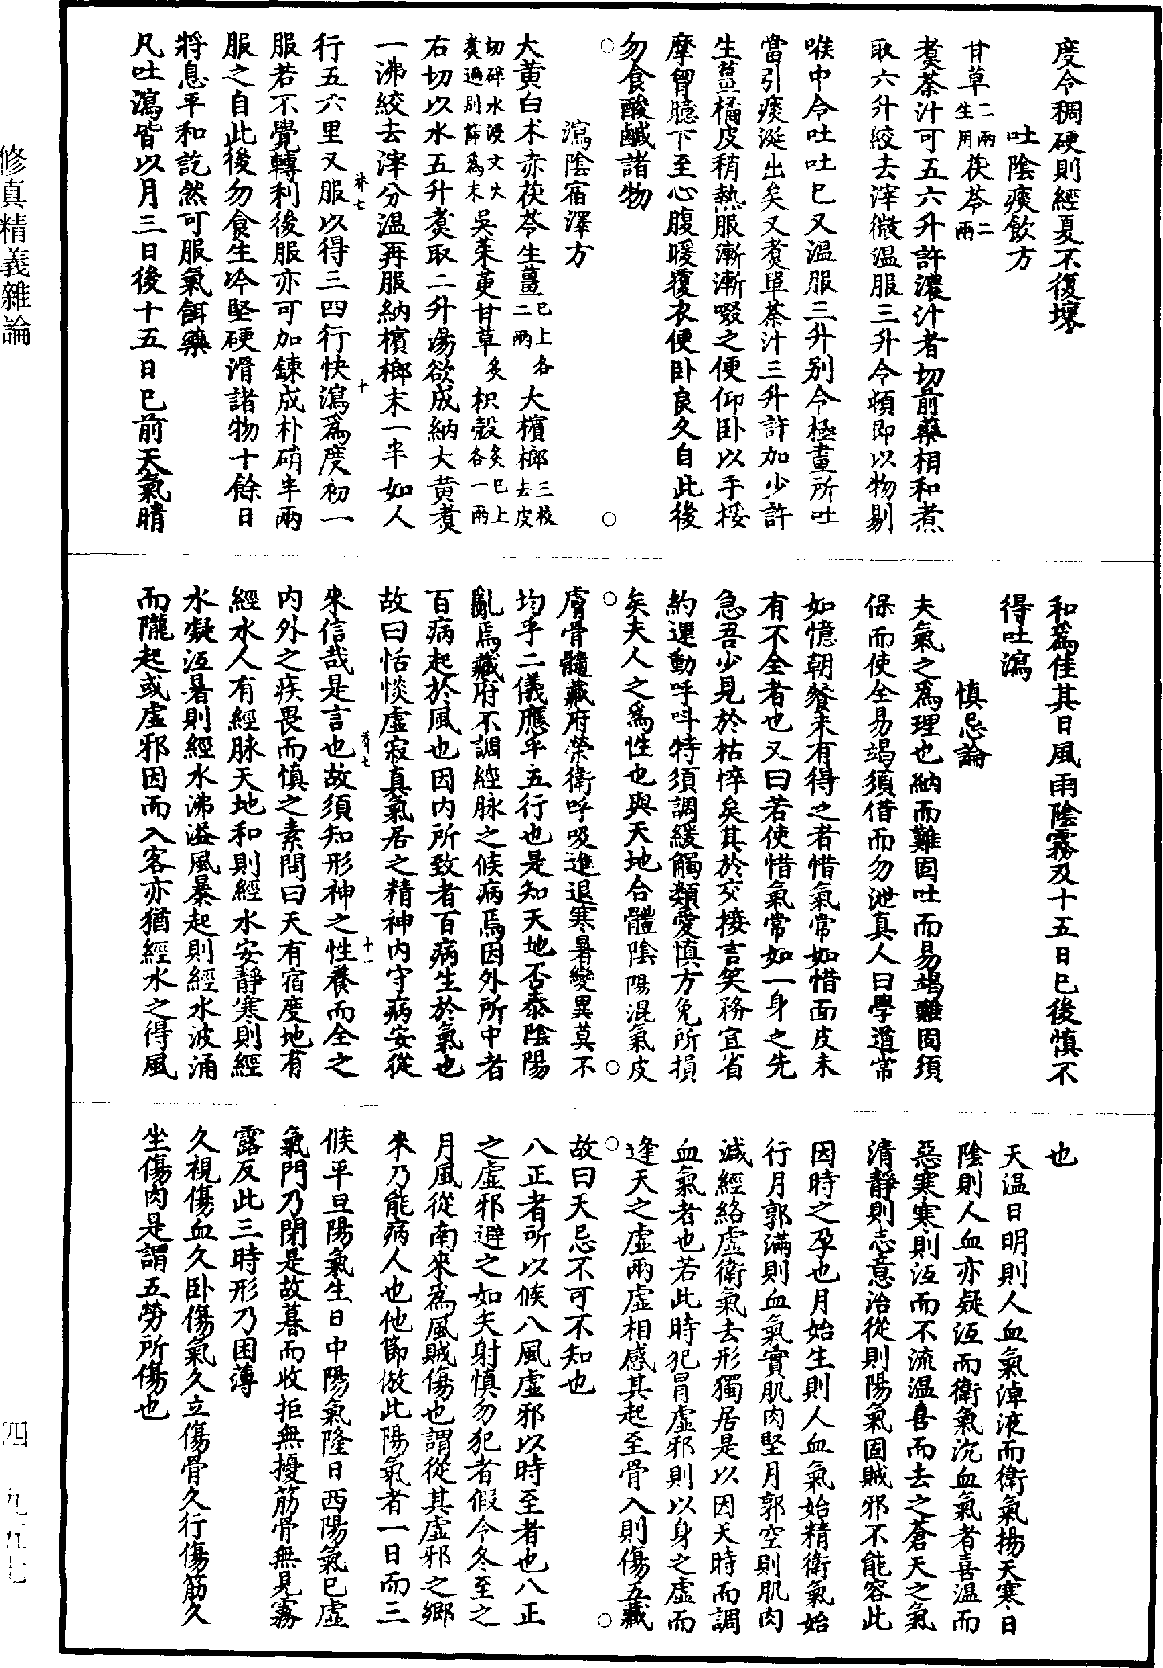 度令稠硬則經夏不復壞
吐陰痰飲方
甘草二兩生用茯苓二兩
煑茶汁可五六升許濃汁者切前藥相和煮
取六升絞去滓微温服三升令頓即以物剔
喉中令吐吐巳又温服三升别令極晝所吐
當引痰涎出矣又煑單茶汁三升許加少許
生薑橘皮稍熱服漸漸啜之便仰卧以手挼
摩胷臆下至心腹暖覆衣便卧良久自此後
勿食酸鹹諸物
瀉陰宿澤方
大黄白术赤茯苓生薑巳上各二兩大檳榔三枚去皮
切碎水浸文火煑過别篩爲末吳茱萸甘草炙枳殼炙巳上各一兩
右切以水五升煑取二升湯欲成納大黄煑
一沸絞去滓分温再服納檳榔末一半如人
行五六里又服以得三四行快瀉爲度初一
服若不覺轉利後服亦可加鍊成朴硝半兩
服之自此後勿食生冷堅硬滑諸物十餘日
將息平和訖然可服氣餌藥
凡吐瀉皆以月三日後十五日巳前天氣晴
和爲佳其日風雨陰霧及十五日巳後慎不
得吐瀉
慎忌論
夫氣之爲理也納而難固吐而易竭難固須
保而使全易竭須借而勿泄真人曰學道常
如憶朝餐未有得之者惜氣常如惜面皮未
有不全者也又曰若使惜氣常如一身之先
急吾少見於枯悴矣其於交接言笑務宜省
約運動呼呌特須調緩觸類愛慎方免所損
矣夫人之爲性也與天地合體陰陽混氣皮
膚骨髓藏府榮衛呼吸進退寒暑變異莫不
均乎二儀應乎五行也是知天地否泰陰陽
亂焉藏府不調經脉之候病焉因外所中者
百病起於風也因内所致者百病生於氣也
故曰恬惔虚寂真氣居之精神内守病安從
來信哉是言也故須知形神之性養而全之
内外之疾畏而慎之素問曰天有宿度地有
經水人有經脉天地和則經水安靜寒則經
水凝沍暑則經水沸溢風暴起則經水波涌
而隴起或虚邪因而入客亦猶經水之得風
也
天温日明則人血氣淖液而衛氣揚天寒日
陰則人血亦凝沍而衛氣沉血氣者喜温而
惡寒寒則沍而不流温喜而去之蒼天之氣
清靜則志意治從則陽氣固賊邪不能容此
因時之孕也月始生則人血氣始精衛氣始
行月郭滿則血氣實肌肉堅月郭空則肌肉
減經絡虚衛氣去形獨居是以因天時而調
血氣者也若此時犯冒虚邪則以身之虚而
逢天之虚兩虚相感其起至骨入則傷五藏
故曰天忌不可不知也
八正者所以候八風虚邪以時至者也八正
之虚邪避之如矢射慎勿犯者假令冬至之
月風從南來爲風賊傷也謂從其虚邪之鄉
來乃能病人也他節倣此陽氣者一日而三
候平旦陽氣生日中陽氣隆日西陽氣已虚
氣門乃閉是故暮而收拒無擾筋骨無見霧
露反此三時形乃困薄
久視傷血久卧傷氣久立傷骨久行傷筋久
坐傷肉是謂五勞所傷也
修真精義雜論
四
九五七